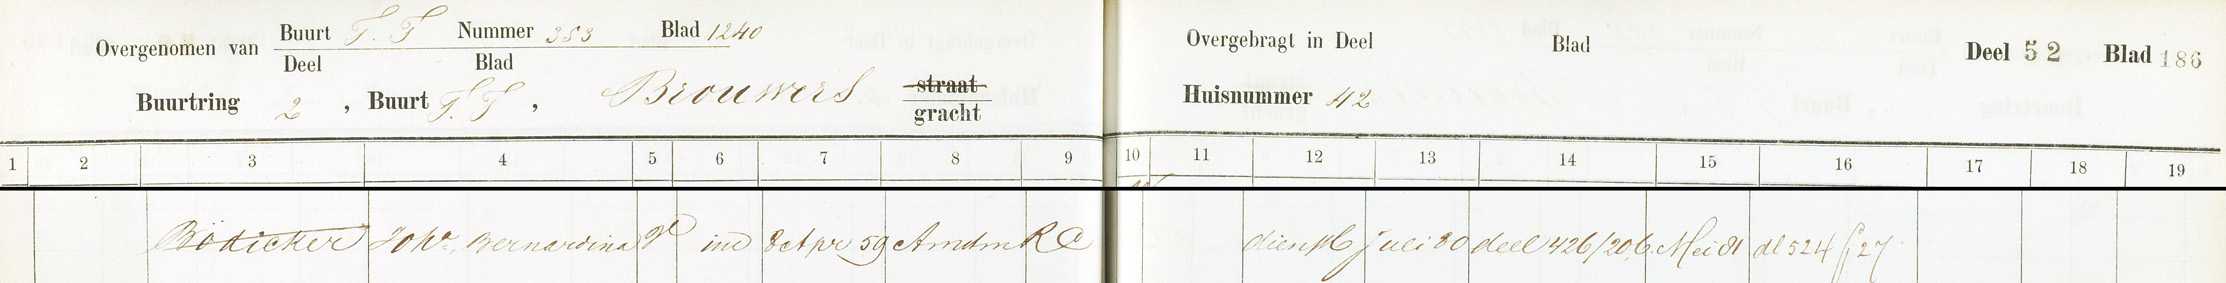 Overgenomen van Buurt T. T Nummer 353 Blad 1240
Deel Blad
Buurtring 2, Buurt T. T, Brouwers straat gracht
Overgebragt in Deel Blad Deel 52 Blad 186
Huisnummer 42
1 2 3 4 5 6 7 8 9 10 11 12 13 14 15 16 17 18 19
Bödicker Joha. Bernardina int 8 Apr 59 Amdm R C dienstb Juli 80 deel 426/206 Mei 81 dl 524 f 27